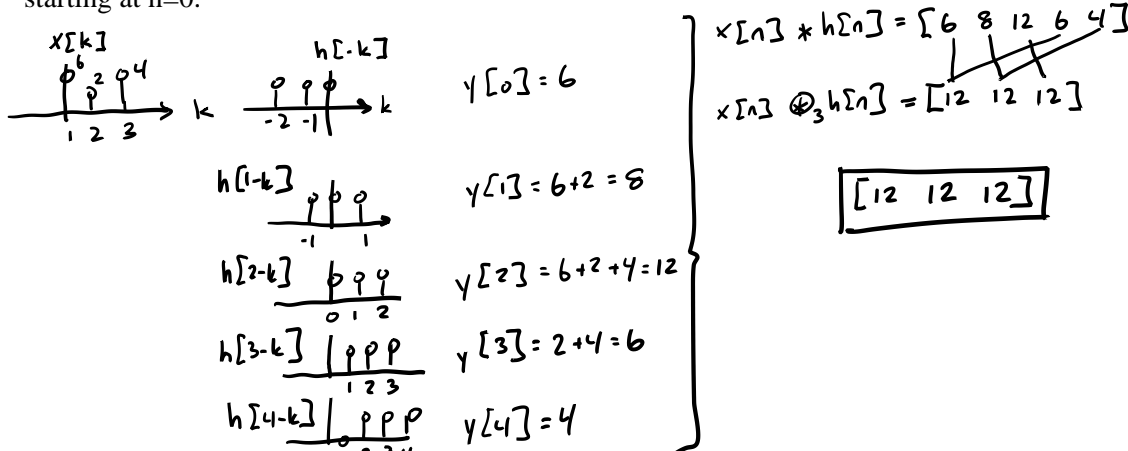 starting at n=0.
x[k]
6
2
4
k
1 2 3
h[-k]
k
-2 -1
y[0] = 6
h[1-k]
-1 1
y[1] = 6+2 = 8
h[2-k]
0 1 2
y[2] = 6+2+4=12
h[3-k]
1 2 3
y[3] = 2+4=6
h[4-k]
y[4] = 4
x[n] * h[n] = [6 8 12 6 4]
x[n] ⊛₃ h[n] = [12 12 12]
[12 12 12]